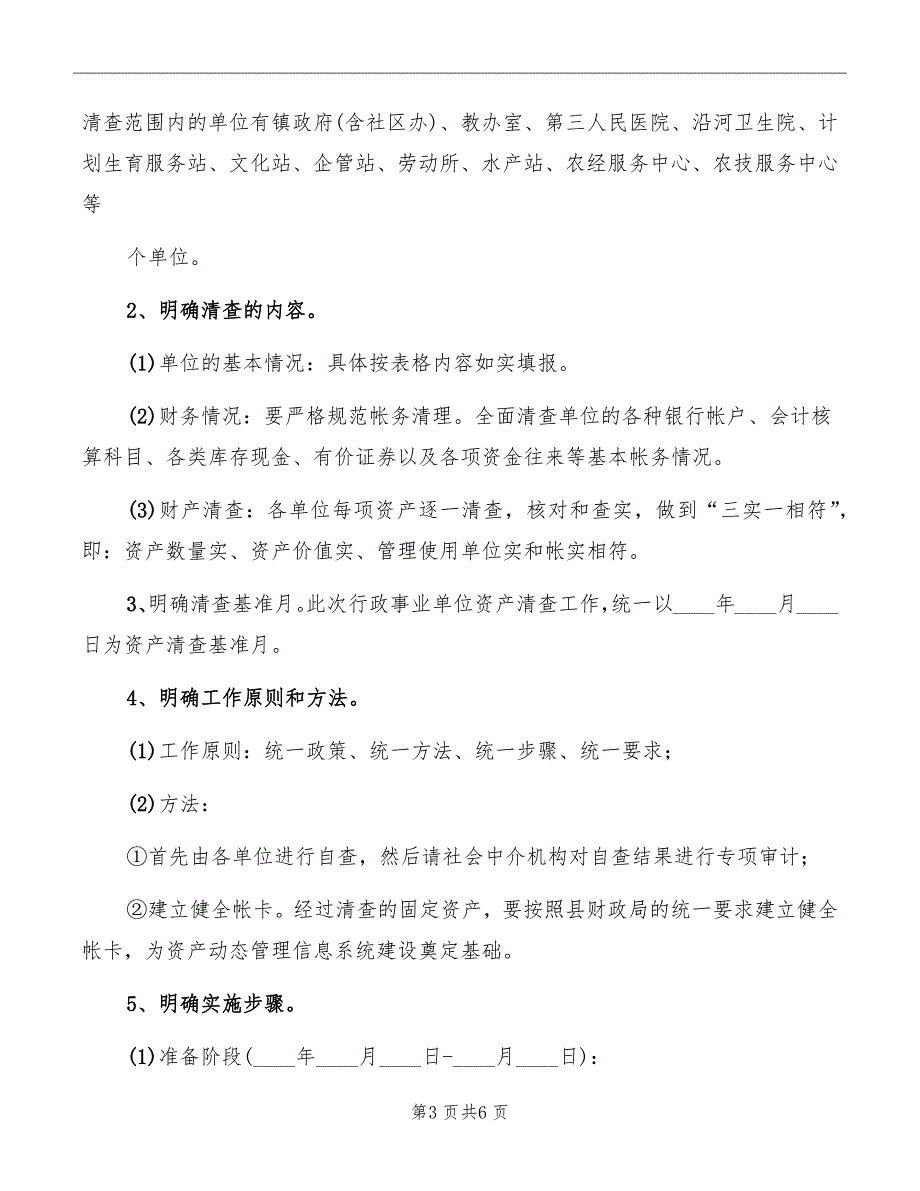 清查范围内的单位有镇政府(含社区办)、教办室、第三人民医院、沿河卫生院、计
划生育服务站、文化站、企管站、劳动所、水产站、农经服务中心、农技服务中心
等
个单位。
2、明确清查的内容。
(1)单位的基本情况：具体按表格内容如实填报。
(2)财务情况：要严格规范帐务清理。全面清查单位的各种银行帐户、会计核
算科目、各类库存现金、有价证券以及各项资金往来等基本帐务情况。
(3)财产清查：各单位每项资产逐一清查，核对和查实，做到“三实一相符”，
即：资产数量实、资产价值实、管理使用单位实和帐实相符。
3、明确清查基准月。此次行政事业单位资产清查工作，统一以____年____月____
日为资产清查基准月。
4、明确工作原则和方法。
(1)工作原则：统一政策、统一方法、统一步骤、统一要求；
(2)方法：
①首先由各单位进行自查，然后请社会中介机构对自查结果进行专项审计；
②建立健全帐卡。经过清查的固定资产，要按照县财政局的统一要求建立健全
帐卡，为资产动态管理信息系统建设奠定基础。
5、明确实施步骤。
(1)准备阶段(____年____月____日-____月____日)：
第3 页共6 页